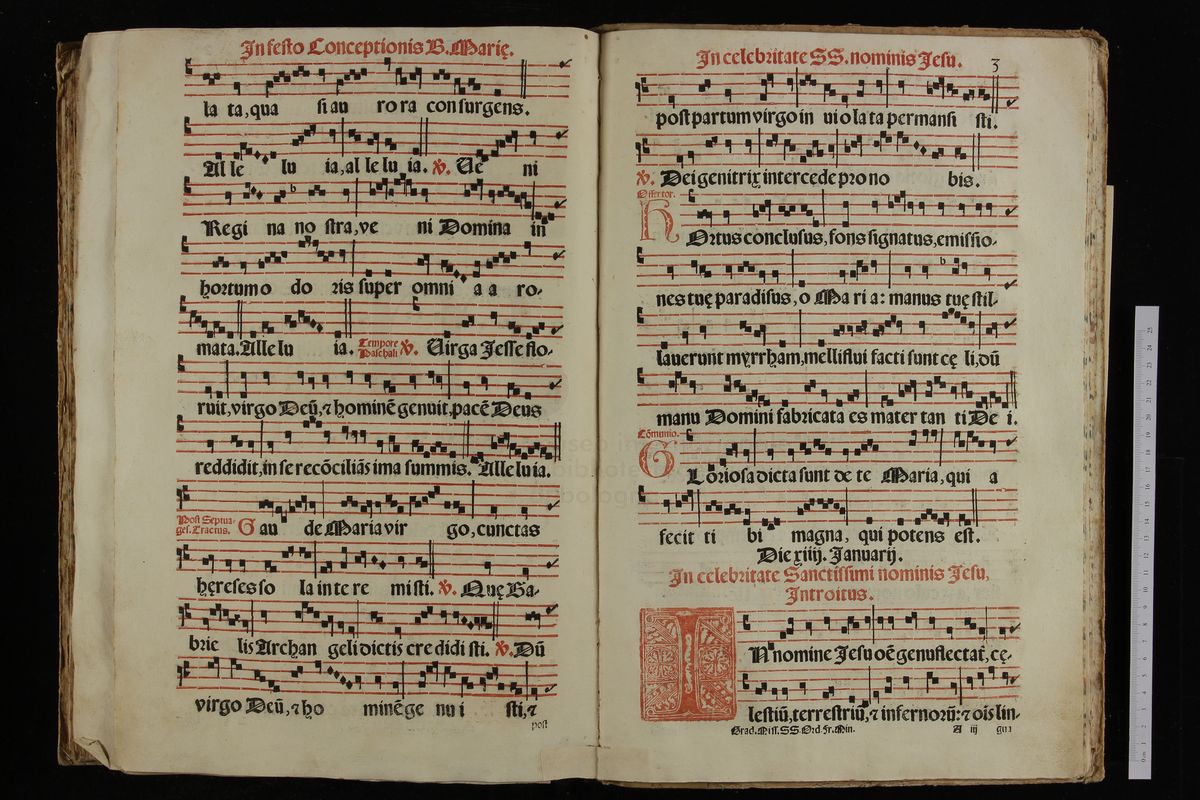 In festo Conceptionis B. Marię.
la ta, qua si au ro ra consurgens.
Al le lu ia, al le lu ia. ℣. Ve ni
Regi na no stra, ve ni Domina in
hortum o do ris super omni a a ro-
mata. Alle lu ia. Tempore Paschali ℣. Virga Jesse flo-
ruit, virgo Deũ, ⁊ hominẽ genuit, pacẽ Deus
reddidit, in se recõciliãs ima summis. Alleluia.
Post Septua-
ges. Tractus. Gau de Maria vir go, cunctas
hęreses so la inte re misti. ℣. Quę Ga-
brie lis Archan geli dictis cre didi sti. ℣. Dũ
virgo Deũ, ⁊ ho minẽ ge nu i sti, ⁊
post
In celebritate SS. nominis Jesu. 3
post partum virgo in uiolata permansi sti.
℣. Dei genitrix intercede pro no bis.
Offertor.
HOrtus conclusus, fons signatus, emissio-
nes tuę paradisus, o Ma ri a: manus tuę stil-
lauerunt myrrham, melliflui facti sunt cę li, dũ
manu Domini fabricata es mater tan ti De i.
Cõmunio.
GLoriosa dicta sunt de te Maria, qui a
fecit ti bi magna, qui potens est.
Die xiiij. Januarij.
In celebritate Sanctissimi nominis Jesu,
Introitus.
IN nomine Jesu oẽ genuflectat̃, cę-
lestiũ, terrestriũ, ⁊ infernorũ: ⁊ ois lin-
Grad. Miss. SS. Ord. Fr. Min. A iij gua